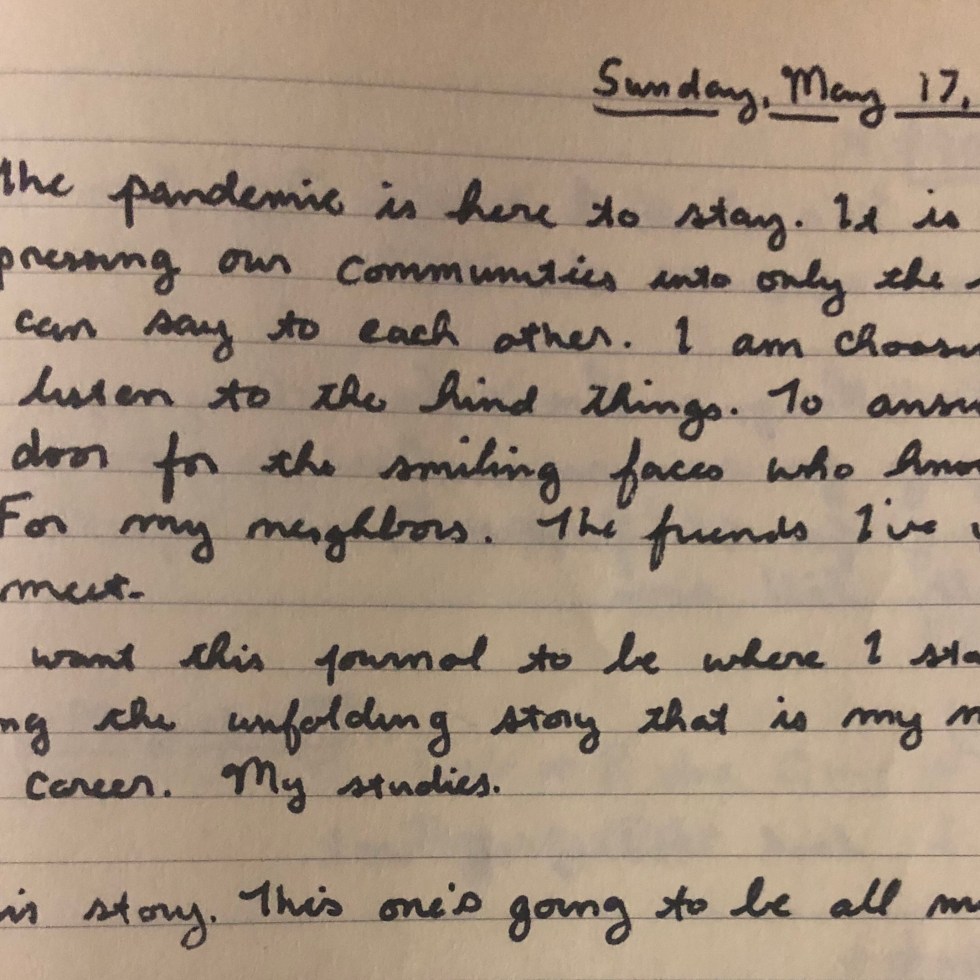 Sunday, May 17,
The pandemic is here to stay. It is
pressing our communities into only the
can say to each other. I am
listen to the kind things. To
door for the smiling faces who
For my neighbors. The friends I've
meet.
want this journal to be where I
the unfolding story that is my
career. My studies.
story. This one's going to be all